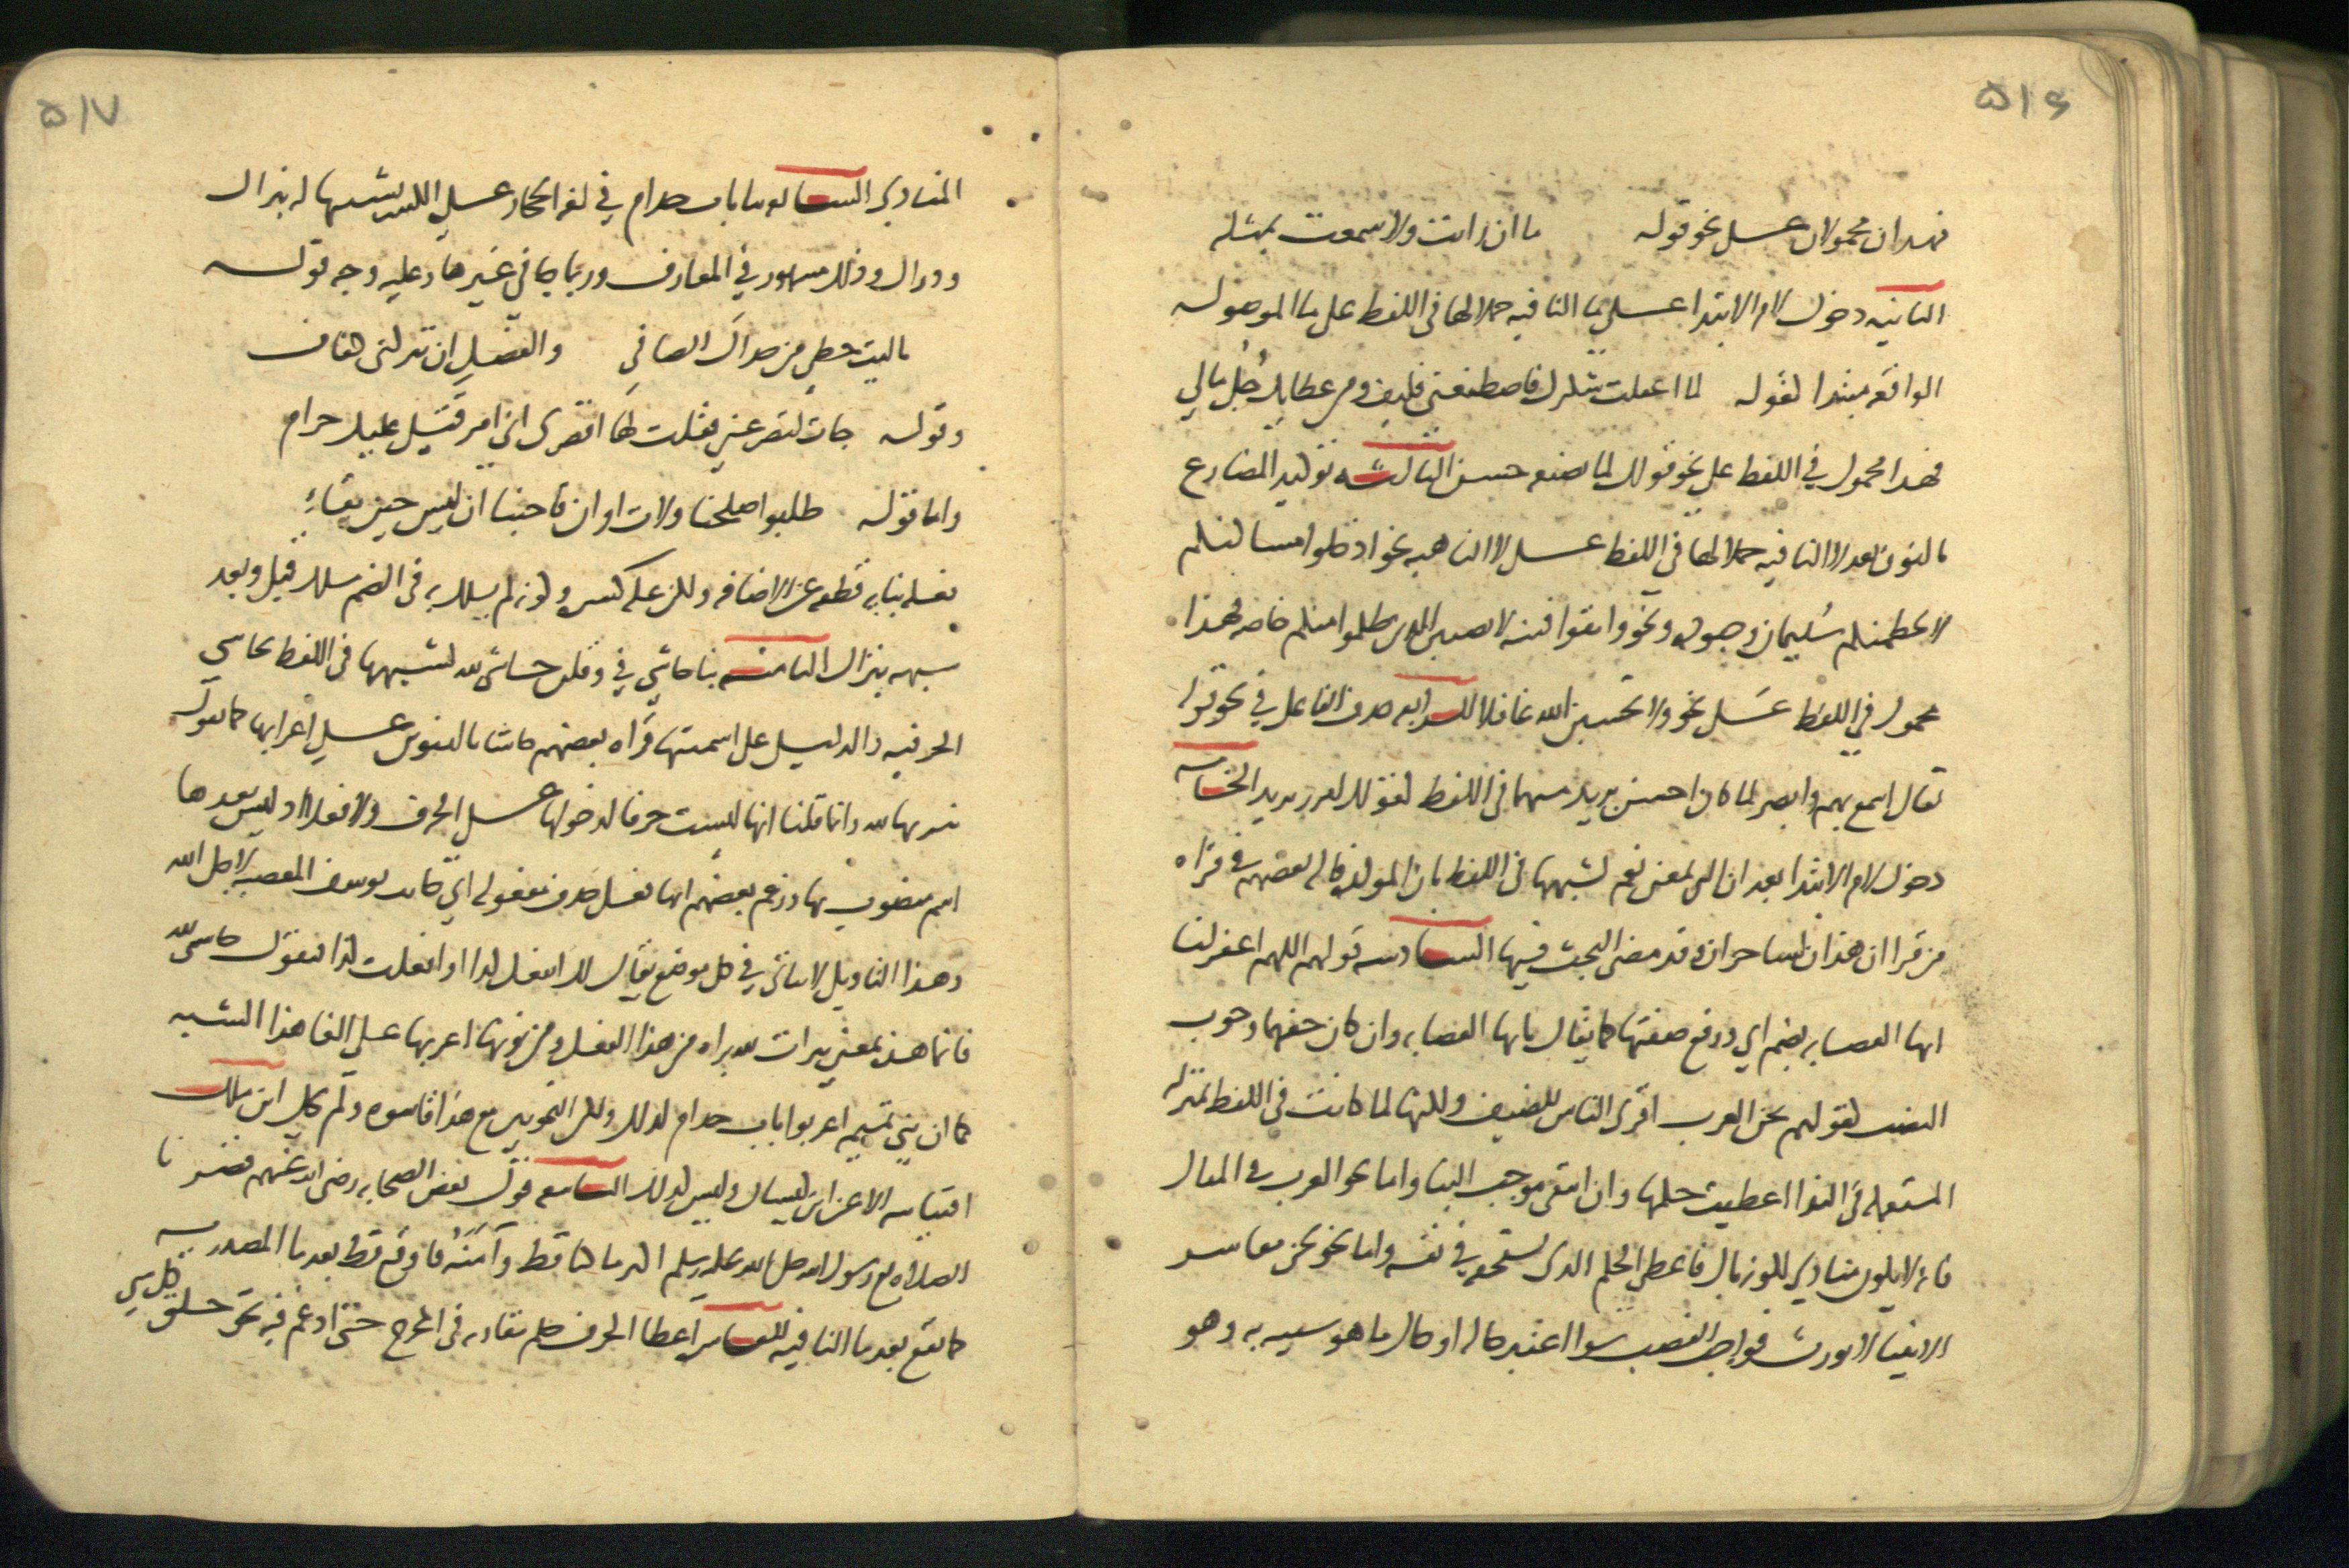 ۵۱۶
فهذان محمولان على نحو قوله ما ان رايت ولا سمعت بمثله
الثانية دخول لام الابتدا على ما النافية حملا لها في اللفظ على ما الموصوله
الواقعة مبتدا لقوله لما اغفلت شكرك فاصطنعني فكيف ومن عطايك جُل مالي
فهذا محمول في اللفظ على نحو قولك لما تصنعه حسن الثالثه توكيد المضارع
بالنون بعد لا النافيه حملا لها في اللفظ على لا الناهيه نحو ادخلوا مساكنكم
لا يحطمنكم سُليمان وجنوده ونحو واتقوا فتنه لا تصيبن الذين ظلموا منكم خاصه فهذا
محمول في اللفظ على نحو ولا تحسبن الله غافلا الرابعه حذف الفاعل في نحو قوله
تعالى اسمع بهم وابصر لما كان احسن بزيد مشبها في اللفظ لقولك امرر بزيد الخامسه
دخول لام الابتدا بعد ان التي بمعنى نعم لشبهها في اللفظ بان المولده قاله بعضهم في قراه
من قرا ان هذان لساحران وقد مضى البحث فيها السادسه قولهم اللهم اغفر لنا
ايها العصابه بضم اي ورفع صفتها كما يقال يا ايها العصابه وان كان حقهما وجوب
النصب لقولهم نحن العرب اقرى الناس للضيف ولكنها لما كانت في اللفظ بمنزله
المستعمله في الندا اعطيت حكمها وان انتفى موجب البنا واما نحو العرب في المثال
فانه لا يكون منادي لكونه بال فاعطي الحكم الذي يستحقه في نفسه واما نحو نحن معاشر
الانبيا لا نورث فواجب النصب سوا اعتبر حاله او حال ما هو شبيه به وهو
۵۱۷
المنادي السابعه بنا باب حذام في لغه الحجاز على الكسر تشبيها له بنزال
ودراك وذلك مشهور في المعارف وربما جا في غيرها وعليه وجه قوله
يا ليت حظي من جداك الصافي والفضل ان تتركني كفاف
وقوله جات لتصرعني فقلت لها اقصري اني امرؤ قتلي عليك حرام
واما قوله طلبوا صلحنا ولات اوان فاجبنا ان ليس حين بقاءِ
فعله بنايه قطعه عن الاضافه ولكن علة كسره وكونه لم يسلك به في الضم مسلك قبل وبعد
شبهه بنزال الثامنه بنا حاشي في وقلن حاشى لله لشبهها في اللفظ بحاشى
الحرفيه والدليل على اسميتها قراه بعضهم حاشا بالتنوين على اعرابها كما تقول
تنزيها لله وانما قلنا انها ليست حرفا لدخولها على الحرف ولا فعلا اذ ليس بعدها
اسم منصوب بها وزعم بعضهم انها فعل حذف مفعوله اي جانب يوسف المعصيه لاجل الله
وهذا التاويل لا يتاتى في كل موضع يقال لك اتفعل كذا او افعلت كذا فتقول حاشى لله
فانما هذه بمعنى تبرات لله براه من هذا الفعل ومن نونها اعربها على الغا هذا الشبه
كما ان بني تميم اعربوا باب حذام لذلك
اقتياسه الا عن ابن كيسان وليس كذلك التاسعه قول بعض الصحابه رضي الله عنهم قصرنا
الصلاه مع رسول الله صلى الله عليه وسلم اكثر ما كنا قط وآمَنُه فاوقع قط بعد ما المصدريه
كما تقع بعد ما النافيه العاشر اعطا الحرف حكم مقاربه في المخرج حتى ادغم فيه نحو خلق كل شي